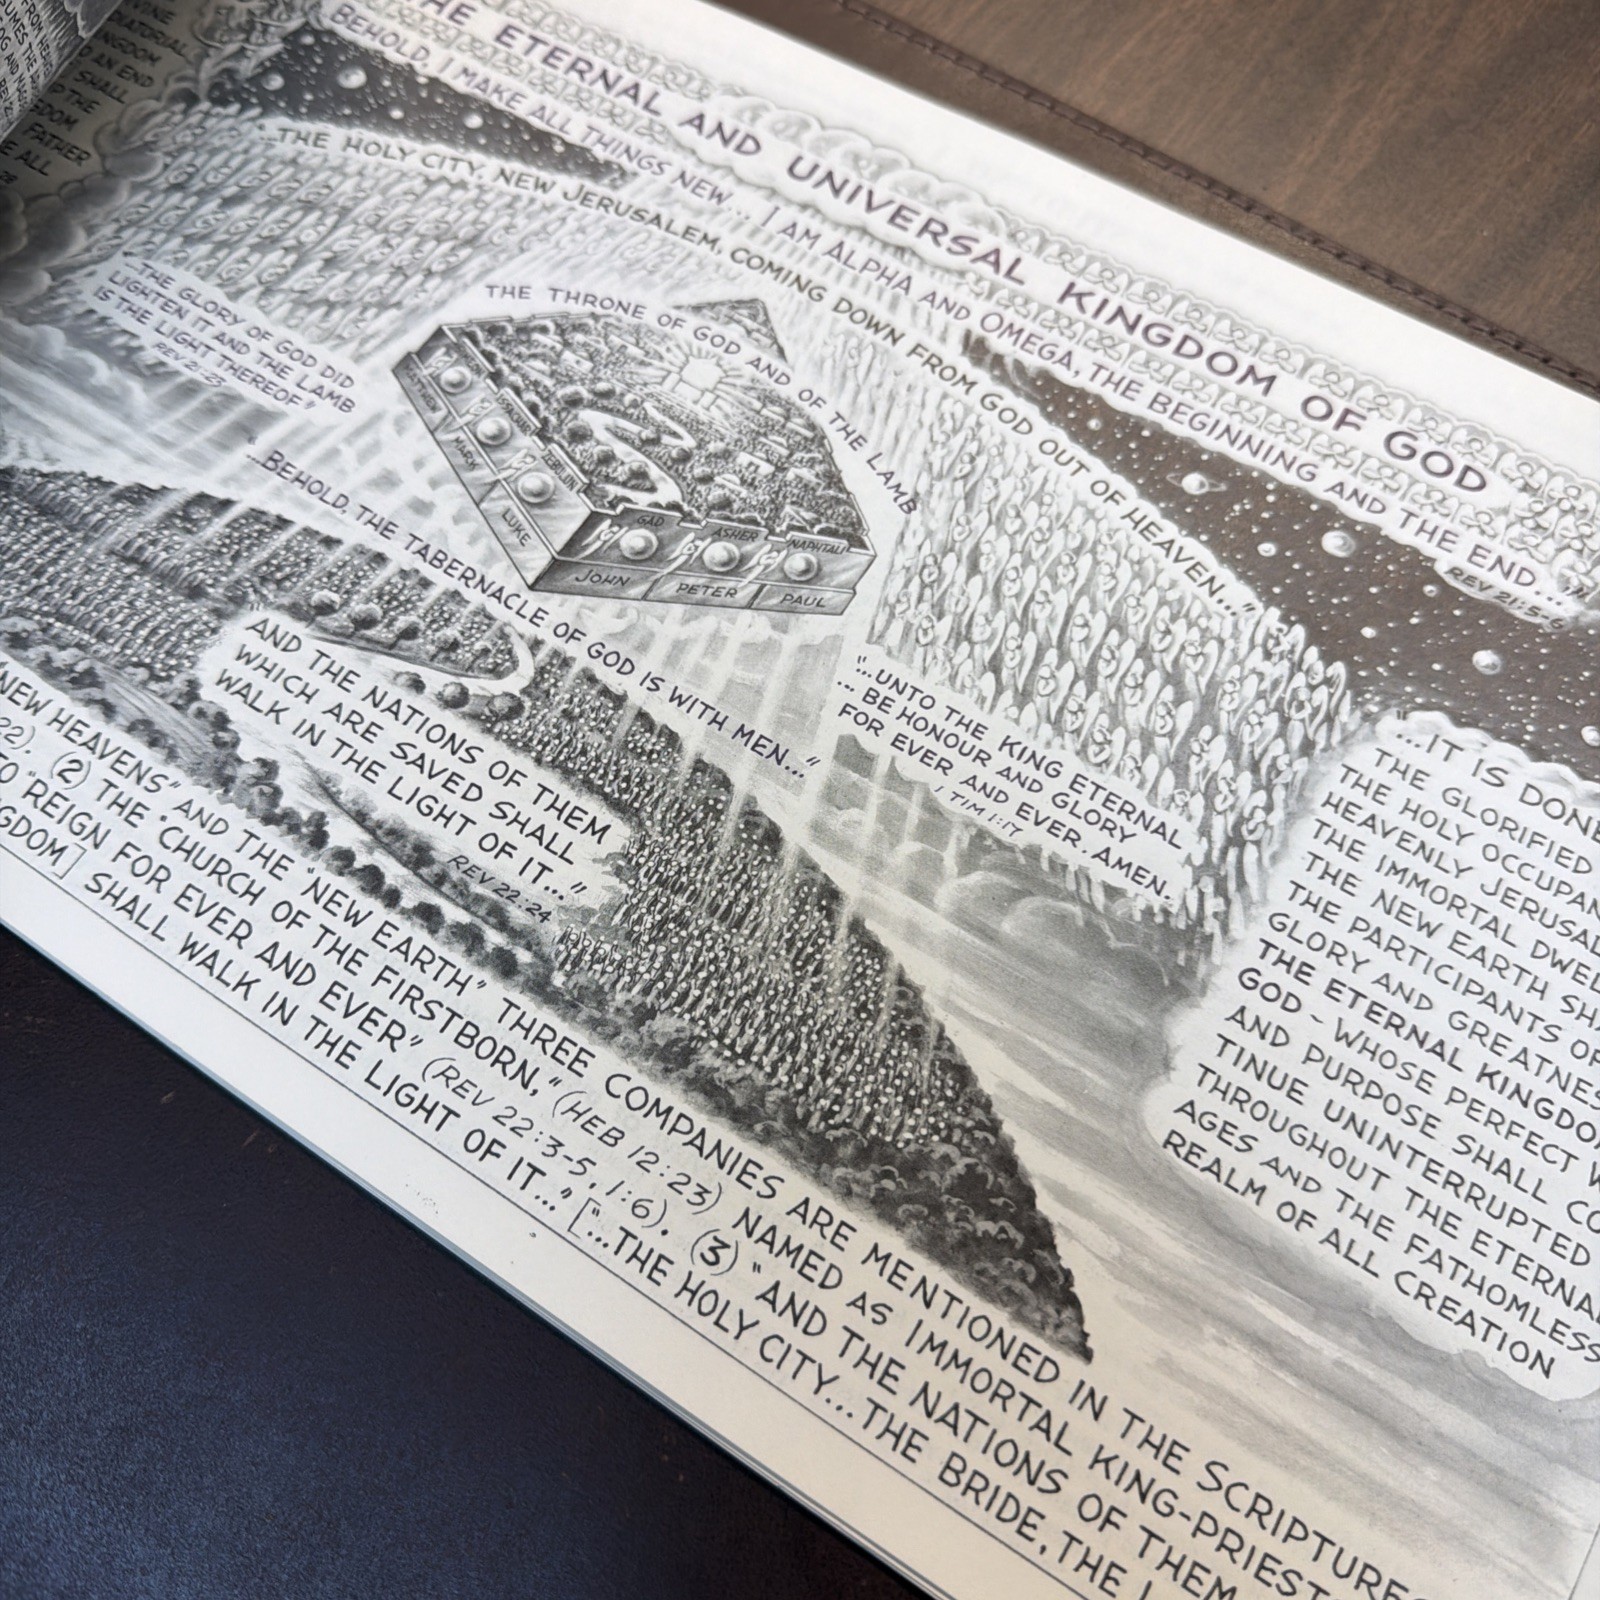 THE ETERNAL AND UNIVERSAL KINGDOM OF GOD
BEHOLD, I MAKE ALL THINGS NEW... I AM ALPHA AND OMEGA, THE BEGINNING AND THE END..."
REV 21:5-6
"...THE HOLY CITY, NEW JERUSALEM, COMING DOWN FROM GOD OUT OF HEAVEN..."
DIATORIAL
AN END
SHALL
UP THE
FATHER
ALL
28
THE THRONE OF GOD AND OF THE LAMB
"...THE GLORY OF GOD DID
LIGHTEN IT AND THE LAMB
IS THE LIGHT THEREOF"
REV 21:23
MARK
LUKE
ZEBULUN
GAD
ASHER
NAPHTALI
JOHN
PETER
PAUL
"...BEHOLD, THE TABERNACLE OF GOD IS WITH MEN..."
"AND THE NATIONS OF THEM
WHICH ARE SAVED SHALL
WALK IN THE LIGHT OF IT..."
REV 22:24
"...UNTO THE KING ETERNAL
...BE HONOUR AND GLORY
FOR EVER AND EVER. AMEN.
1 TIM 1:17
"...IT IS DONE
THE GLORIFIED
THE HOLY
HEAVENLY
THE IMMORTAL
THE NEW EARTH
THE PARTICIPANTS
GLORY AND
THE ETERNAL
GOD - WHOSE PERFECT
AND PURPOSE SHALL
TINUE UNINTERRUPTED
THROUGHOUT THE
AGES AND THE FATHOMLESS
REALM OF ALL CREATION
NEW HEAVENS" AND THE "NEW EARTH" THREE COMPANIES ARE MENTIONED IN THE SCRIPTURES
22). (2) THE "CHURCH OF THE FIRSTBORN," (HEB 12:23) NAMED AS IMMORTAL KING-PRIESTS
TO "REIGN FOR EVER AND EVER" (REV 22:3-5, 1:6). (3) "AND THE NATIONS OF THEM
SHALL WALK IN THE LIGHT OF IT..." ["...THE HOLY CITY... THE BRIDE, THE